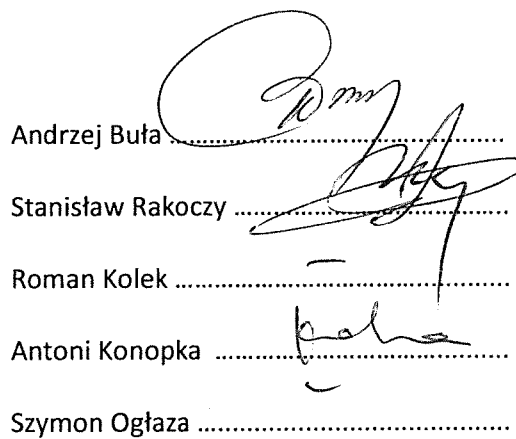 Andrzej Buła ......................................................
Stanisław Rakoczy ............................................
Roman Kolek .....................................................
Antoni Konopka ...............................................
Szymon Ogłaza ..................................................